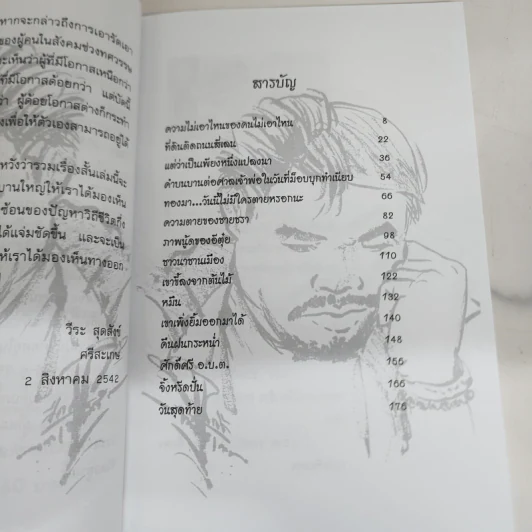 หากจะกล่าวถึงการเอารัดเอา
ของผู้คนในสังคมช่วงทศวรรษ
ะเห็นว่าผู้ที่มีโอกาสเหนือกว่า
ที่มีโอกาสด้อยกว่า แต่บัดนี้
ว่า ผู้ด้อยโอกาสต่างก็กระทำ
งเพื่อให้ตัวเองสามารถอยู่ได้
หวังว่ารวมเรื่องสั้นเล่มนี้จะ
บานใหญ่ให้เราได้มองเห็น
ซ้อนของปัญหาวิถีชีวิตที่ดู
ได้แจ่มชัดขึ้น และจะเป็น
ห้เราได้มองเห็นทางออก
วีระ สุดสังข์
ศรีสะเกษ
2 สิงหาคม 2542
สารบัญ
ความไม่เอาไหนของคนไม่เอาไหน 8
ที่ดินติดถนนสี่เลน 22
แต่ว่าเป็นเพียงหนึ่งแปลงนา 36
คำบนบานต่อศาลเจ้าพ่อในวันที่ม็อบบุกทำเนียบ 54
ทองมา...วันนี้ไม่มีใครตายหรอกนะ 66
ความตายของชายชรา 82
ภาพนู้ดของอีตุ้ย 98
ชาวนาชานเมือง 110
เขาขี้ลงจากต้นไม้ 122
หมีน 132
เขาเพิ่งยิ้มออกมาได้ 140
คืนฝนกระหน่ำ 148
ศักดิ์ศรี อ.บ.ต. 156
จิ้งหรีดปั่น 166
วันสุดท้าย 176